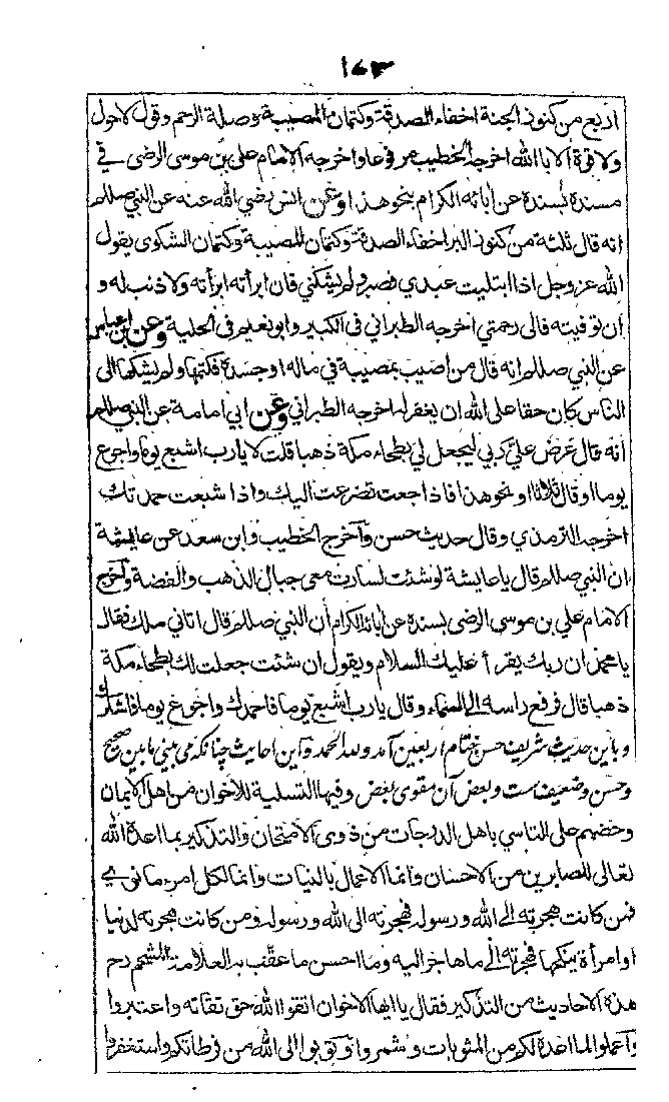 ١٦٣
اربع من كنوز الجنة اخفاء الصدقة وكتمان المصيبة وصلة الرحم وقول لاحول
ولا قوة الا بالله اخرجه الخطيب مرفوعا واخرجه الامام على بن موسى الرضى فى
مسنده بسنده عن ابائه الكرام بنحو هذا وعن انس رضي الله عنه عن النبي صللم
انه قال ثلثة من كنوز البر اخفاء الصدقة وكتمان المصيبة وكتمان الشكوى يقول
الله عز وجل اذا ابتليت عبدي فصبر ولم يشكني فان ابرأته ابرأته ولا ذنب له و
ان توفيته فالى رحمتي اخرجه الطبراني فى الكبير وابو نعيم فى الحلية وعن بن عباس
عن النبي صللم انه قال من اصيب بمصيبة في ماله او جسده فكتمها ولم يشكها الى
الناس كان حقا على الله ان يغفر له اخرجه الطبراني وعن ابي امامة عن النبي صللم
انه قال عرض علي ربي ليجعل لي بطحاء مكة ذهبا قلت لا يارب اشبع يوما واجوع
يوما او قال ثلاثا او نحو هذا فاذا جعت تضرعت اليك واذا شبعت حمدتك
اخرجه الترمذي وقال حديث حسن واخرج الخطيب وابن سعد عن عايشة
ان النبي صللم قال يا عايشة لو شئت لسارت معى جبال الذهب والفضة واخرج
الامام علي بن موسى الرضى بسنده عن ابائه الكرام أن النبي صللم قال اتاني ملك فقال
يا محمد ان ربك يقرأ عليك السلام ويقول ان شئت جعلت لك بطحاء مكة
ذهبا قال فرفع راسه الى السماء وقال يارب اشبع يوما فاحمدك واجوع يوما فاشكرك
وباين حديث شريف حسن ختام اربعين آمد ولله الحمد واين احاديث چنانكه مى بينى مابين صحيح
وحسن وضعيف ست وبعض آن مقوى بعض وفيها التسلية للاخوان من اهل الايمان
وحضهم على التاسي باهل الدرجات من ذوى الامتحان والتذكير بما اعده الله
تعالى للصابرين من الاحسان وانما الاعمال بالنيات وانما لكل امرء ما نوى
فمن كانت هجرته الى الله ورسوله فهجرته الى الله ورسوله ومن كانت هجرته لدنيا
او امرأة ينكحها فهجرته الى ما هاجر اليه وما احسن ما عقب به العلامة رح
هذه الاحاديث من التذكير فقال يا ايها الاخوان اتقوا الله حق تقاته واعتبروا
واعملوا لما اعده لكم من المثوبات وشمروا وتوبوا الى الله من فرطاتكم واستغفروا